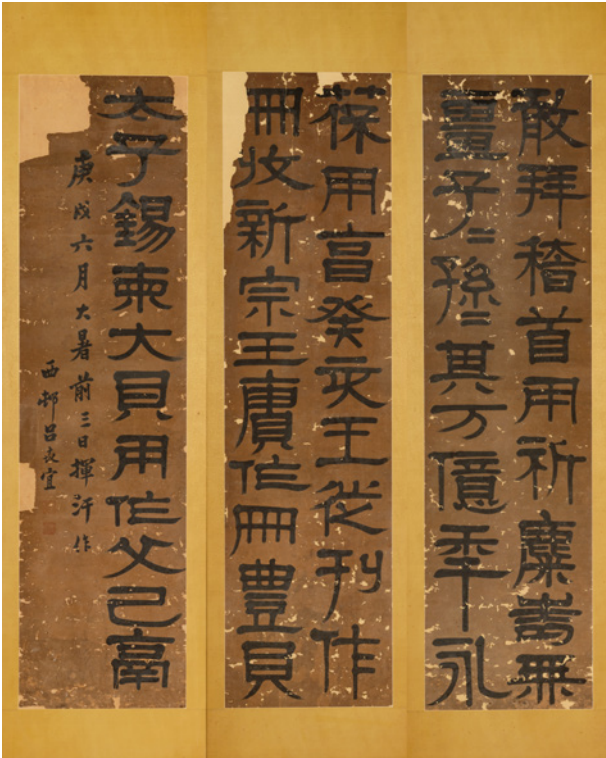 敢拜稽首用祈麋壽無
畺子二孫二其万億年永
葆用亯癸亥王徙刊作
冊牧新宗王賡作冊豊貝
太子錫東大貝用作父己鬲
庚戌六月大暑前三日揮汗作
西邨呂世宜